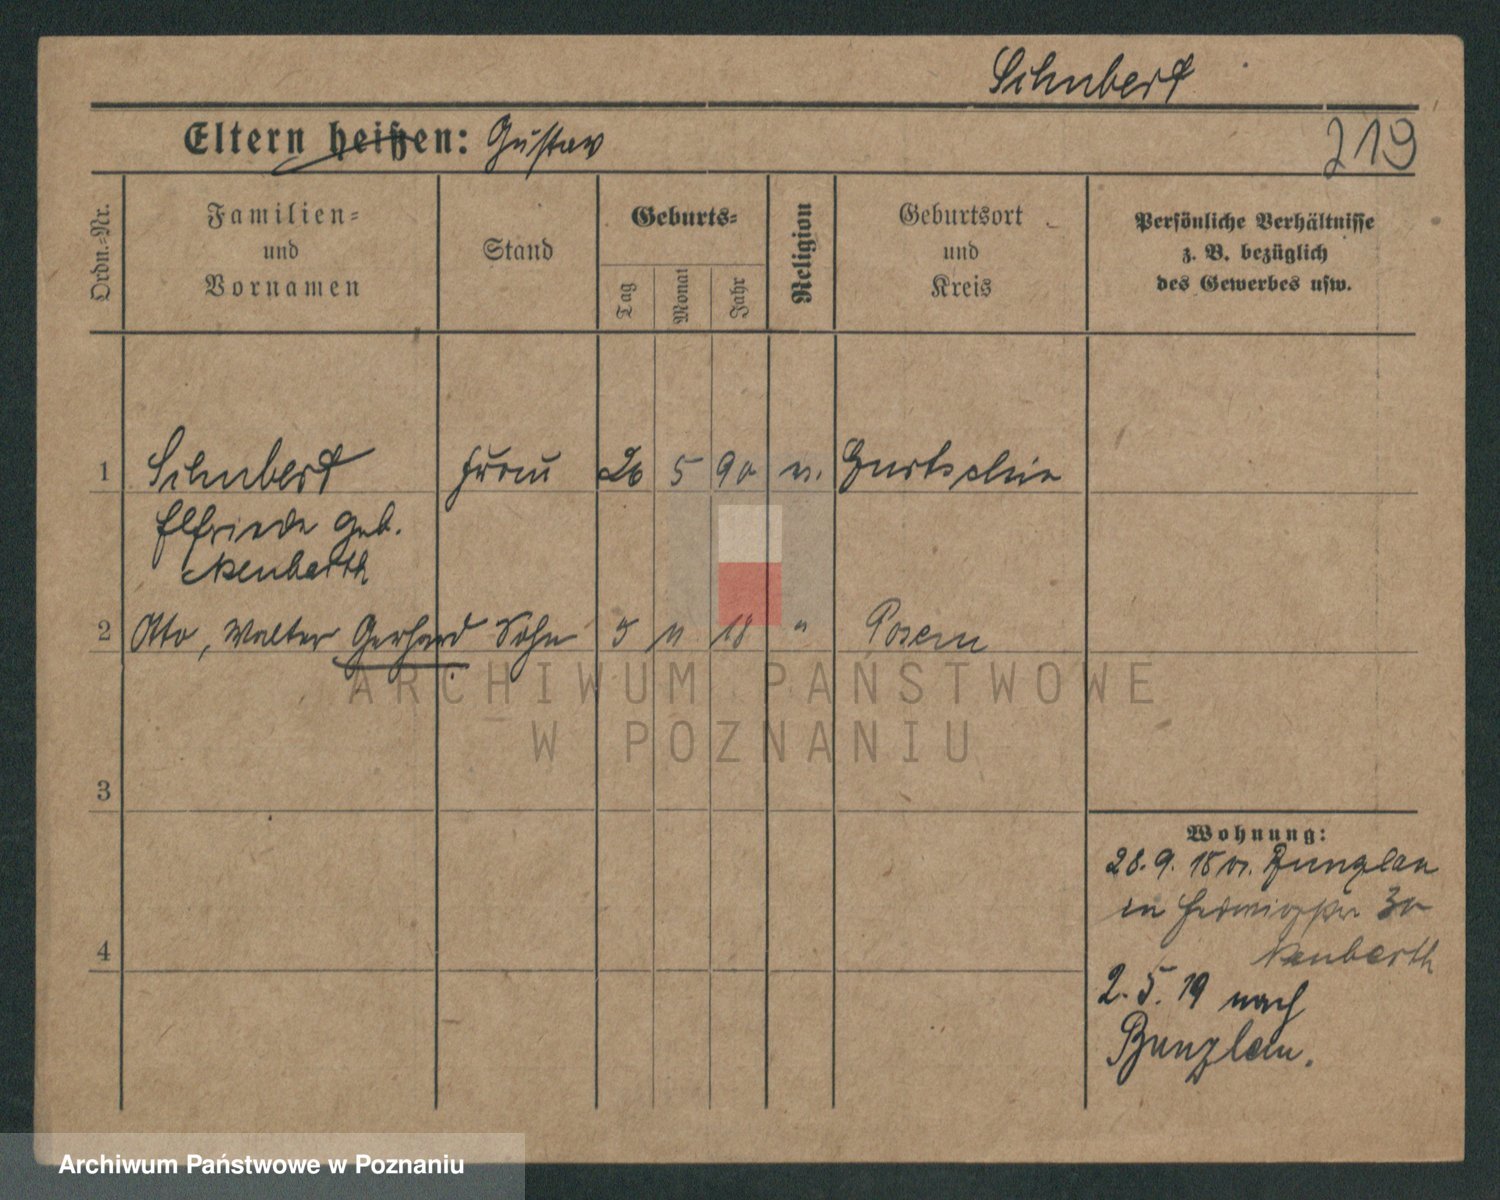 Schubert
Eltern heißen: Gustav
219
Ordn.=Nr.
Familien=
und
Vornamen
Stand
Geburts=
Tag
Monat
Jahr
Religion
Geburtsort
und
Kreis
Persönliche Verhältnisse
z. B. bezüglich
des Gewerbes usw.
1 Schubert Frau 26 5 90
Elfriede geb.
2 Otto, Walter Gerhard Sohn 11 18 " Posen
ARCHIWUM PAŃSTWOWE
W POZNANIU
3
Wohnung:
28. 9. 18 v. Bunzlau
4
2. 5. 19 nach
Bunzlau.
Archiwum Państwowe w Poznaniu